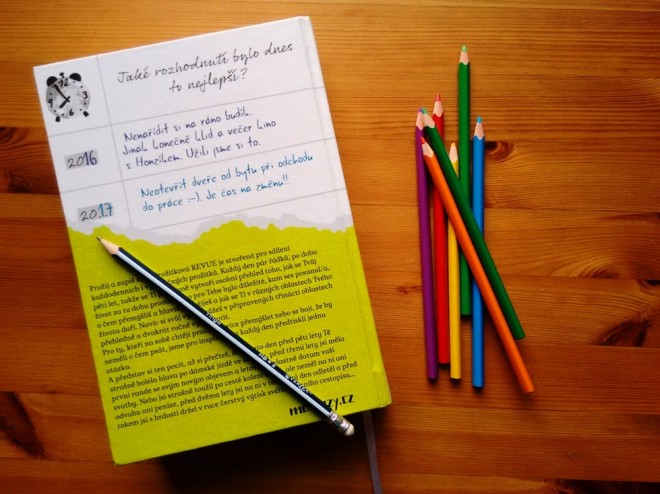 Jaké rozhodnutí bylo dnes
to nejlepší?
2016
Nenařídit si na ráno budík.
Jinak konečně klid a večer kino
s Honzíkem. Užili jsme si to.
2017
Neotevřít dveře od bytu při odchodu
do práce :-). Je čas na změnu!!
Prožij a zapiš REVUE je stvořená pro sdílení
každodenních i výjimečných prožitků. Každý den pár řádků, po dobu
pěti let, takže se Ti vytvoří osobní přehled toho, jak se Tvůj
život za tu dobu pro Tebe bylo důležité, kum ses posunul/a,
o čem přemýšlíš a jak se Ti v různých oblastech Tvého
života daří. Navíc si svůj můžeš v připravených třinácti oblastech
přehledně a dvakrát ročně
Pro ty, kteří na sobě chtějí více přemýšlet nebo se bojí, že by
neměli o čem psát, jsme pro každý den předtiskli jednu
otázku.
A představ si ten pocit, až si přečteš, den před pěti lety Tě
strašně bolela hlava po dámské jízdě před třemi lety jsi měla
první rande se svým novým objevem a letos datum vaší
svatby. Nebo jsi strašně toužil po cestě kolem ale neměl na ni
odvahu ani peníze, před dvěma lety jsi na ni v den odletěl a před
rokem jsi s hrdostí držel v ruce čerstvý výtisk cestopisu...